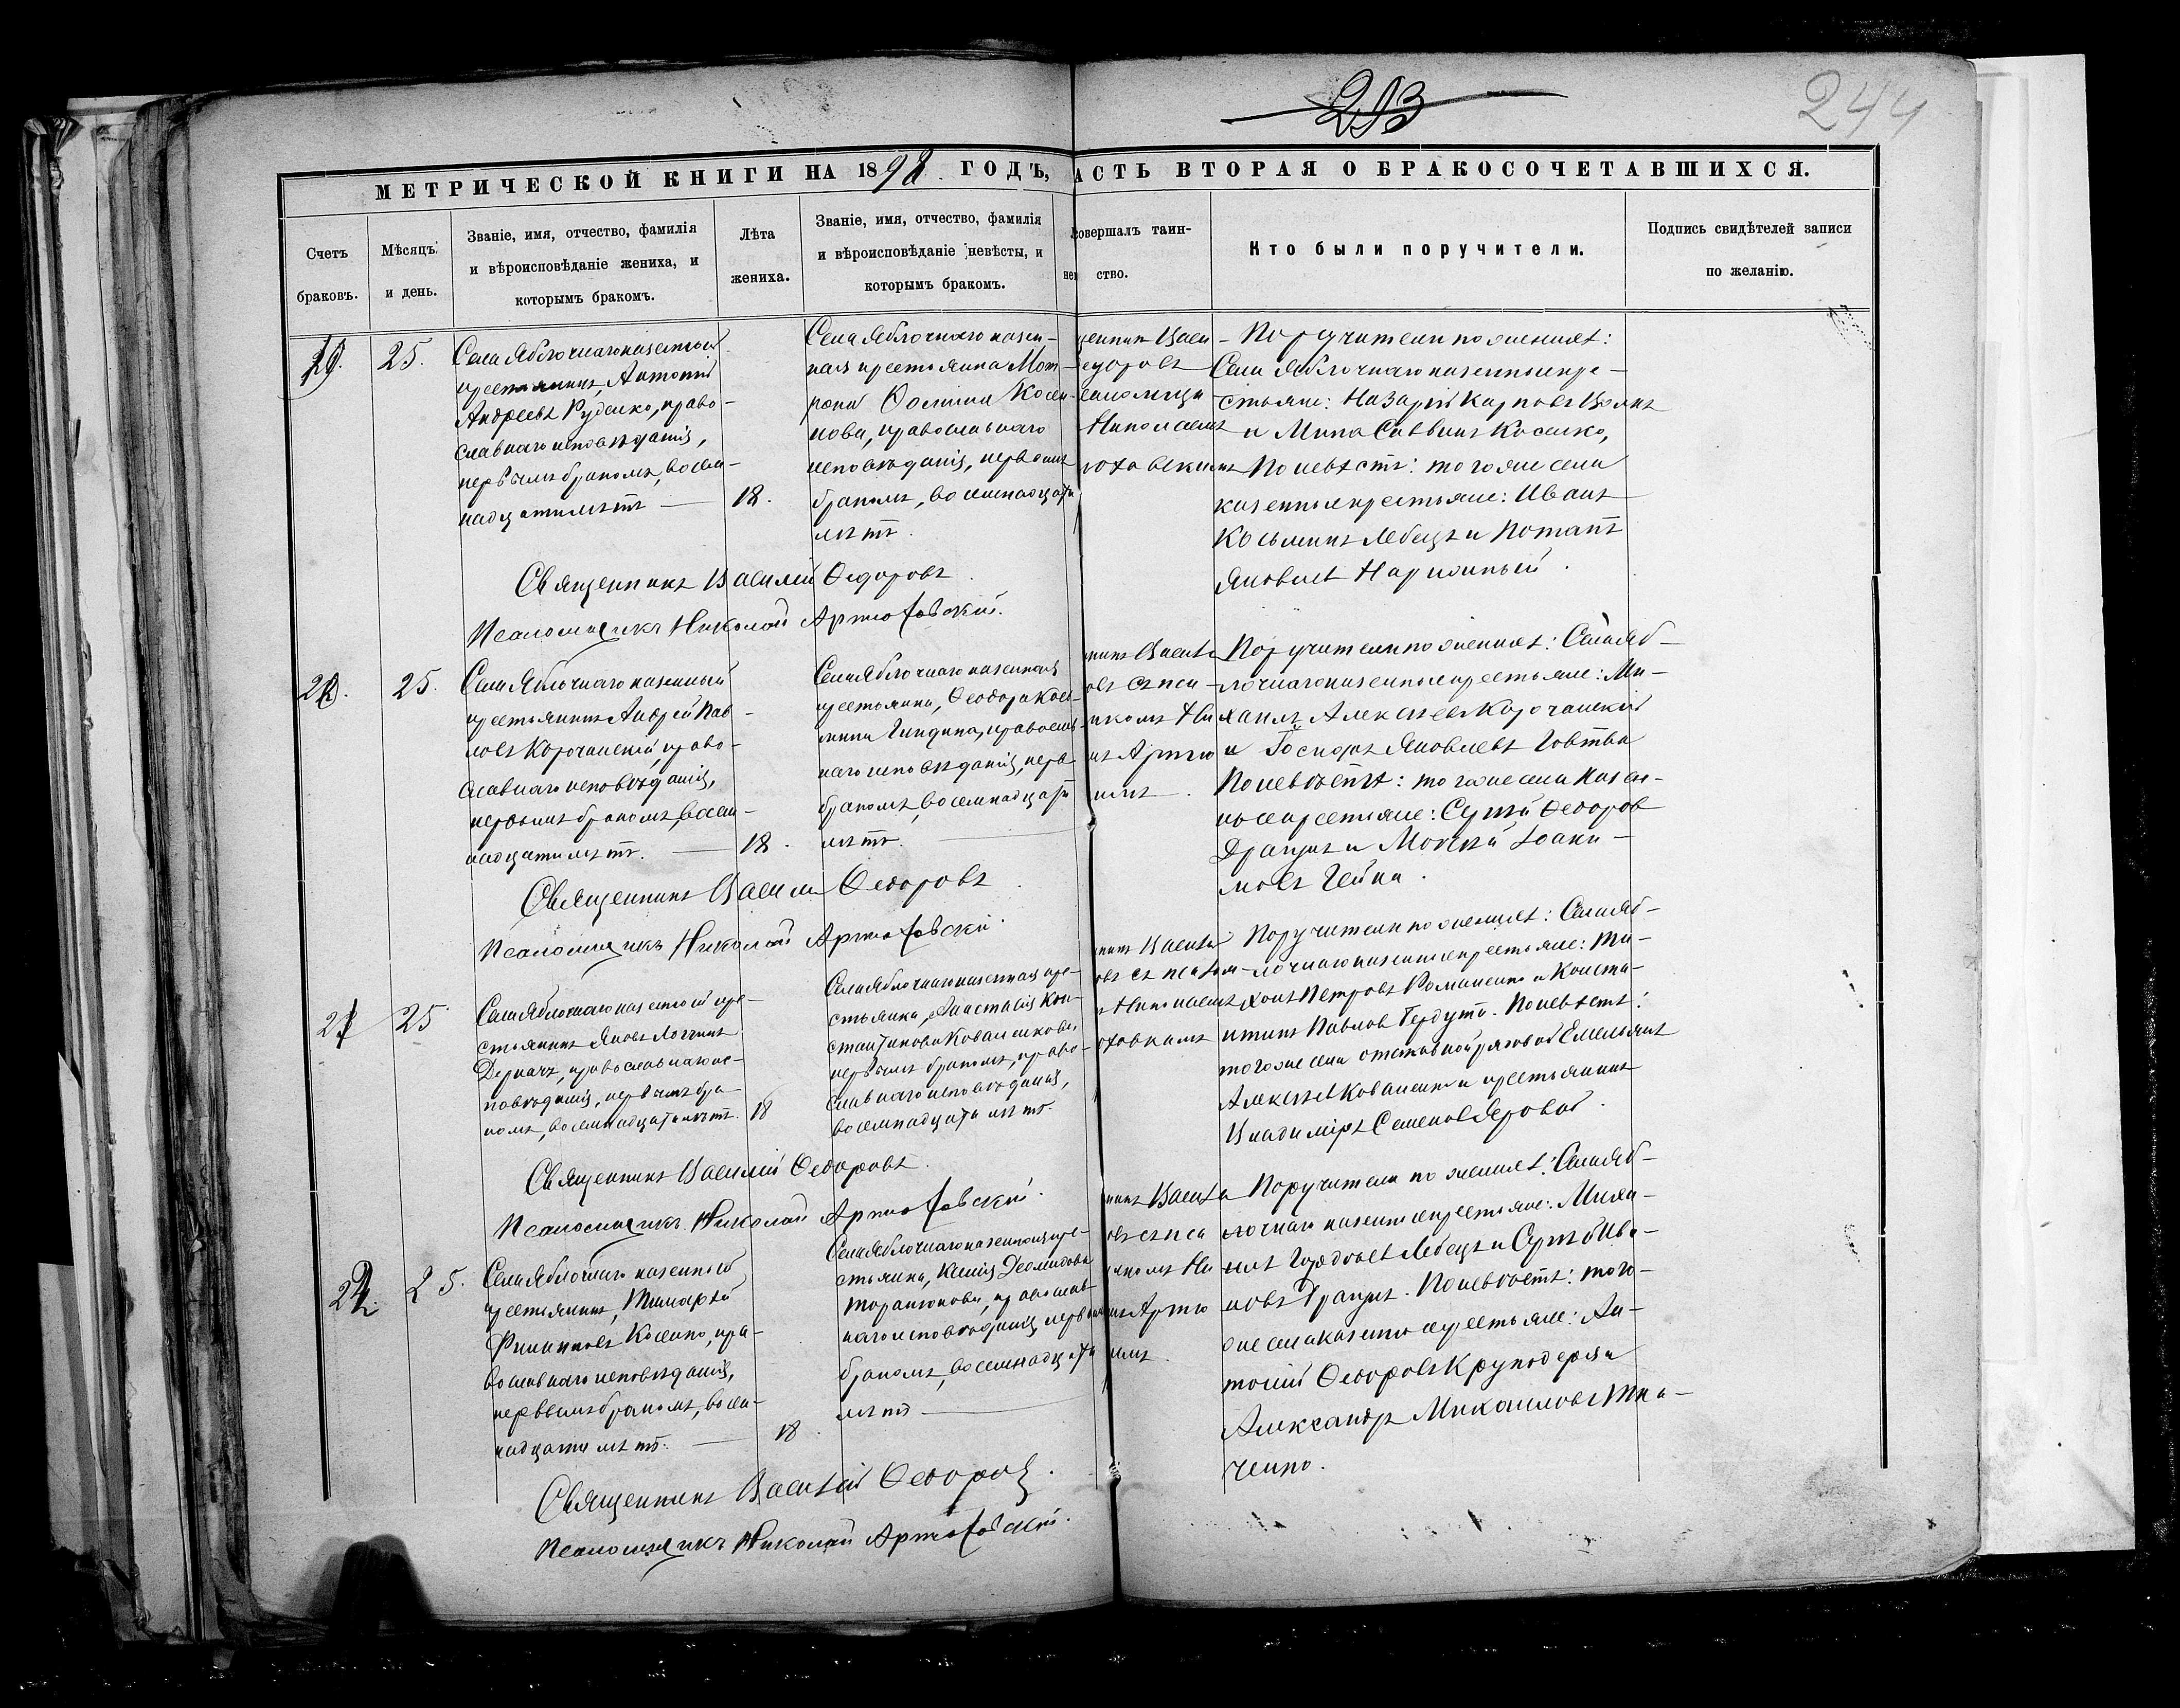 293
244
МЕТРИЧЕСКОЙ КНИГИ НА 1898 ГОДЪ, АСТЬ ВТОРАЯ О БРАКОСОЧЕТАВШИХСЯ.
Счетъ
браковъ.
Мѣсяцъ
и день.
Званіе, имя, отчество, фамилія
и вѣроисповѣданіе жениха, и
которымъ бракомъ.
Лѣта
жениха.
Званіе, имя, отчество, фамилія
и вѣроисповѣданіе невѣсты, и
которымъ бракомъ.
нев
совершалъ таин-
ство.
Кто были поручители.
Подпись свидѣтелей записи
по желанію.
25.
Села Яблочнаго казенный
крестьянинъ, Антоній
Андреевъ Руденко, право-
славнаго исповѣданія,
первымъ бракомъ, восем-
надцати лѣтъ
18.
Села Яблочнаго казен-
ная крестьянка Мат-
рона Фомина Косен-
кова, православнаго
исповѣданія, первымъ
бракомъ, восемнадцати
лѣтъ.
щенникъ Васи-
едоровъ
саломщи
Николаемъ
юховскимъ
Поручители по женихѣ:
Села Яблочнаго казенные кре-
стьяне: Назарій Карповъ
и Мина Саввинъ Косенко,
По невѣстѣ: того же села
казенные крестьяне: Иванъ
Косьминъ Лебедь и Потапъ
Яковлевъ Нарижный.
Священникъ Василій Ѳедоровъ
Псаломщикъ Николай Артюховскій.
25.
Села Яблочнаго казенный
крестьянинъ Андрей Пав-
ловъ Корочанскій, право-
славнаго исповѣданія,
первымъ бракомъ, восем-
надцати лѣтъ.
18.
Села Яблочнаго казенная
крестьянка, Ѳеодора Кось-
мина Гиндина, православ-
наго исповѣданія, перв
бракомъ, восемнадцати
лѣтъ.
никъ Василі
овъ съ пса-
икомъ Ни
мъ Артю
имъ.
Поручители по женихѣ: Села Яб-
лочнаго казенные крестьяне: Ми-
хаилъ Алексѣевъ Корочанскій
и Яковлевъ Говтва
По невѣстѣ: того же села казен-
ные крестьяне: Сергѣй Ѳедоров
и Іоаки-
мовъ Гейка.
Священникъ Василій Ѳеодоровъ
Псаломщикъ Николай Артюховскій.
25
Села Яблочнаго казенный кре-
стьянинъ Яковъ Логгинъ
Деркачъ, православнаго ис-
повѣданія, первымъ бра-
комъ, восемнадцати лѣтъ.
18
Села Яблочнаго казенная кре-
стьянка, Анастасія Кон-
стантинова Коваленкова,
первымъ бракомъ, право-
славнаго исповѣданія,
восемнадцати лѣтъ.
никъ Василі
овъ съ псалом-
ъ Николаемъ
юховскимъ
Поручители по женихѣ: Села Яб-
лочнаго казенные крестьяне: Ти-
хонъ Петровъ Романенко и Конста-
нтинъ Павлов. По невѣстѣ:
того же села отставной рядовой Емельянъ
Алексѣевъ Коваленко и крестьянинъ
Владиміръ Семеновъ Яровой.
Священникъ Василій Ѳеодоровъ.
Псаломщикъ Николай Артюховскій.
25.
Села Яблочнаго казенный
крестьянинъ, Тимоѳей
Филипповъ Косенко, пра-
вославнаго исповѣданія,
первымъ бракомъ, восем-
надцати лѣтъ.
18.
Села Яблочнаго казенная кре-
стьянка, Ксенія
православ-
наго исповѣданія, первым
бракомъ, восемнадцати
лѣтъ
никъ Василі
овъ съ пса
икомъ Ни
мъ Артю
имъ.
Поручители по женихѣ: Села Яб-
лочнаго казенные крестьяне: Миха-
илъ Гордѣевъ Лебедь и Сергѣй Ива-
новъ. По невѣстѣ: того-
же села казенные крестьяне: Ан-
тоній Ѳеодоровъ Круподеря и
Александръ Михаиловъ Тка-
ченко.
Священникъ Василій Ѳеодоровъ.
Псаломщикъ Николай Артюховскій.